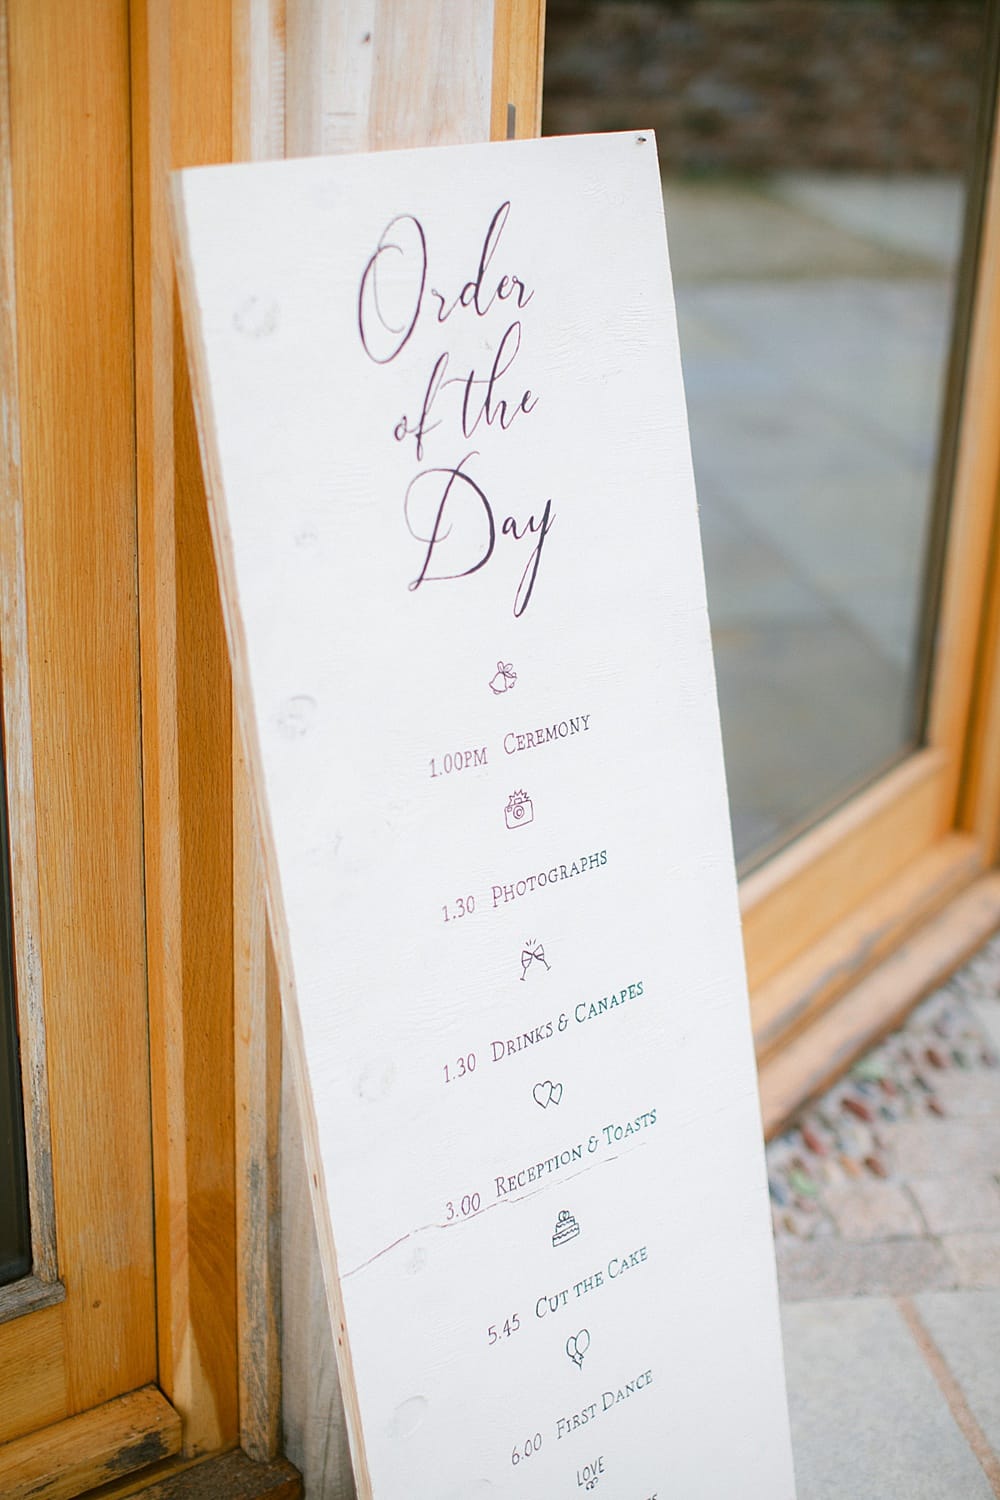 Order
of the
Day
1.00PM CEREMONY
1.30 PHOTOGRAPHS
1.30 DRINKS & CANAPES
3.00 RECEPTION & TOASTS
5.45 CUT THE CAKE
6.00 FIRST DANCE
LOVE